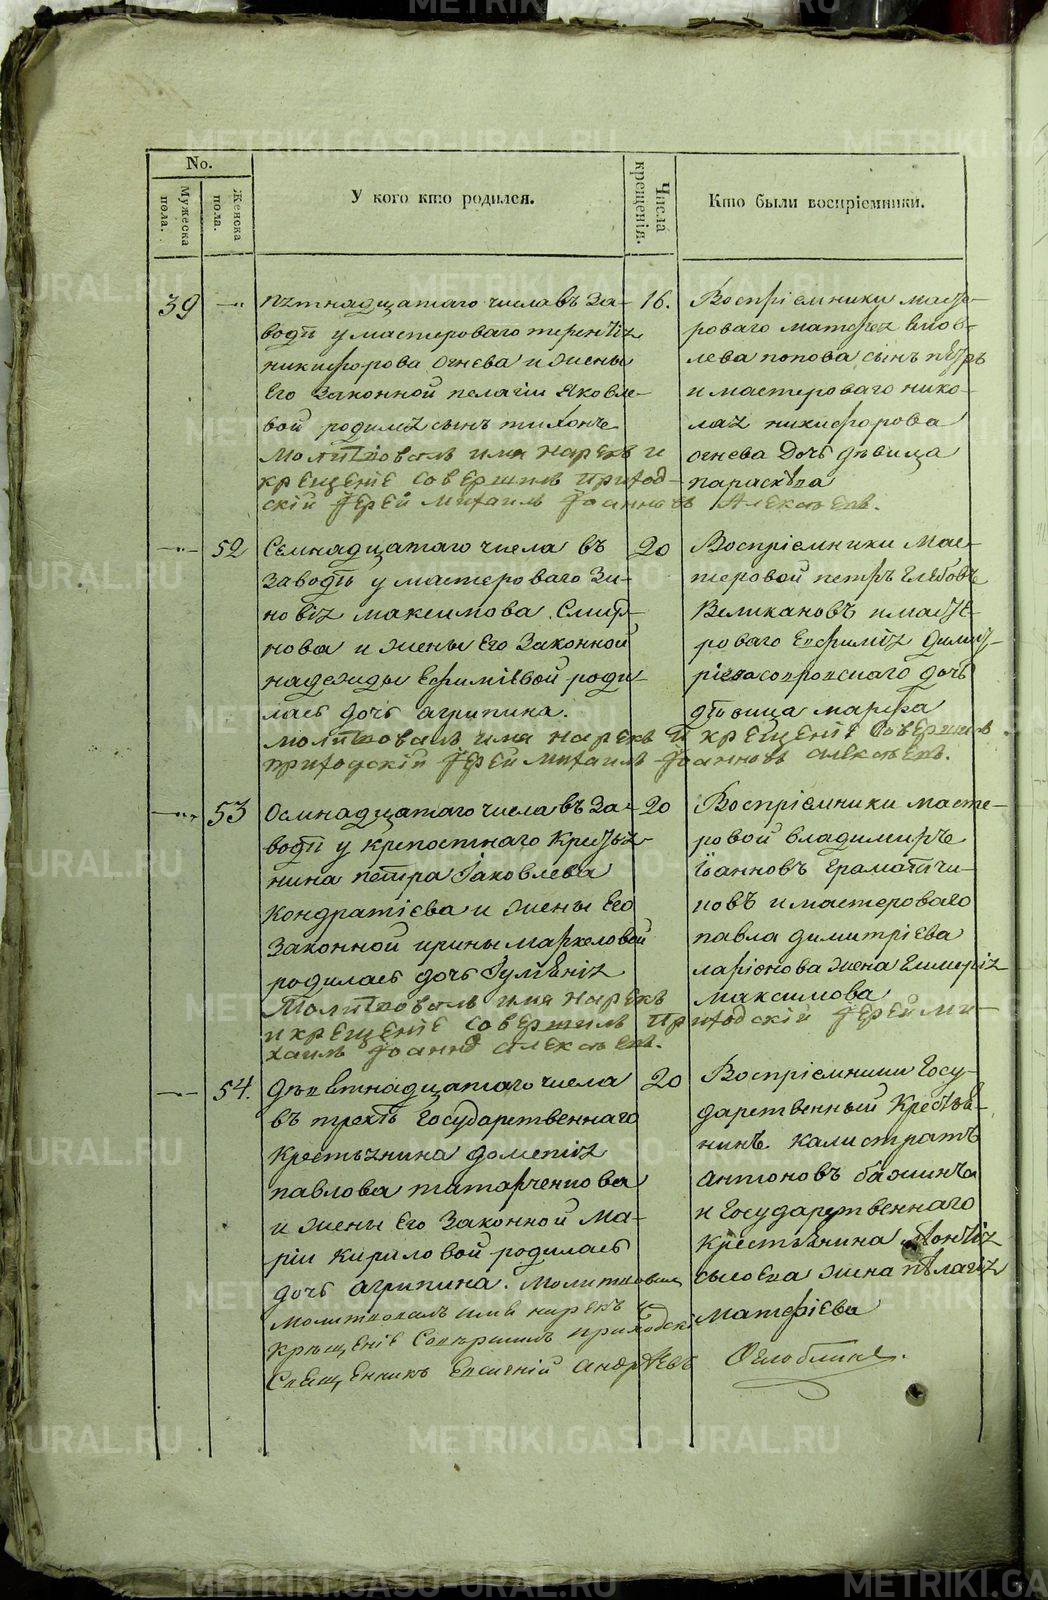 No.
Мужеска пола.
Женска пола.
У кого кто родился.
Числа крещенія.
Кто были воспріемники.
39
пятнадцатаго числа въ за-
водѣ у мастероваго терентія
никифорова огнева и жены
его законной пелагіи яковле-
вой родился сынъ тихонъ
Молитвовалъ имя нарекъ и
крещеніе совершилъ приход-
скій Іерей михаилъ Іоанновъ Алексѣевъ.
16.
Воспріемники масте-
роваго матфея
попова сынъ петръ
и мастероваго нико-
лая никифорова
огнева дочь дѣвица
параскева
52
Семнадцатаго числа въ
заводѣ у мастероваго зи-
новія максимова Смир-
нова и жены его законной
надежды Ефиміевой роди-
лась дочь агрипина.
молитвовалъ имя нарекъ и крещеніе совершилъ
приходскій Іерей михаилъ Іоанновъ алексѣевъ.
20
Воспріемники мас-
теровой петръ глебовъ
Великановъ и масте-
роваго Евфимія димит-
ріева дочь
дѣвица марфа
53
Осмнадцатаго числа въ за-
водѣ у крепостнаго Крестья-
нина петра Іаковлева
Кондратіева и жены его
законной ирины маркеловой
родилась дочь
Молитвовалъ имя нарекъ
и крещеніе совершилъ приходскій Іерей ми-
хаилъ Іоанновъ алексѣевъ.
20
Воспріемники масте-
ровой владимиръ
Іоанновъ граматчи-
ковъ и мастероваго
павла димитріева
ларіонова жена
максимова
54.
девятнадцатаго числа
въ трекѣ государственнаго
Крестьянина дометія
павлова татарченкова
и жены его законной ма-
ріи кириловой родилась
дочь агрипина. молитвовалъ
молитвовалъ имя нарекъ и
крещеніе совершилъ приходскій
священникъ Евгеній андреевъ
20
Воспріемники госу-
дарственный Крестья-
нинъ калистратъ
антоновъ бажинъ
и государственнаго
крестьянина леонтія
сысоева жена пелагія
матфіева
METRIKI.GASO-URAL.RU